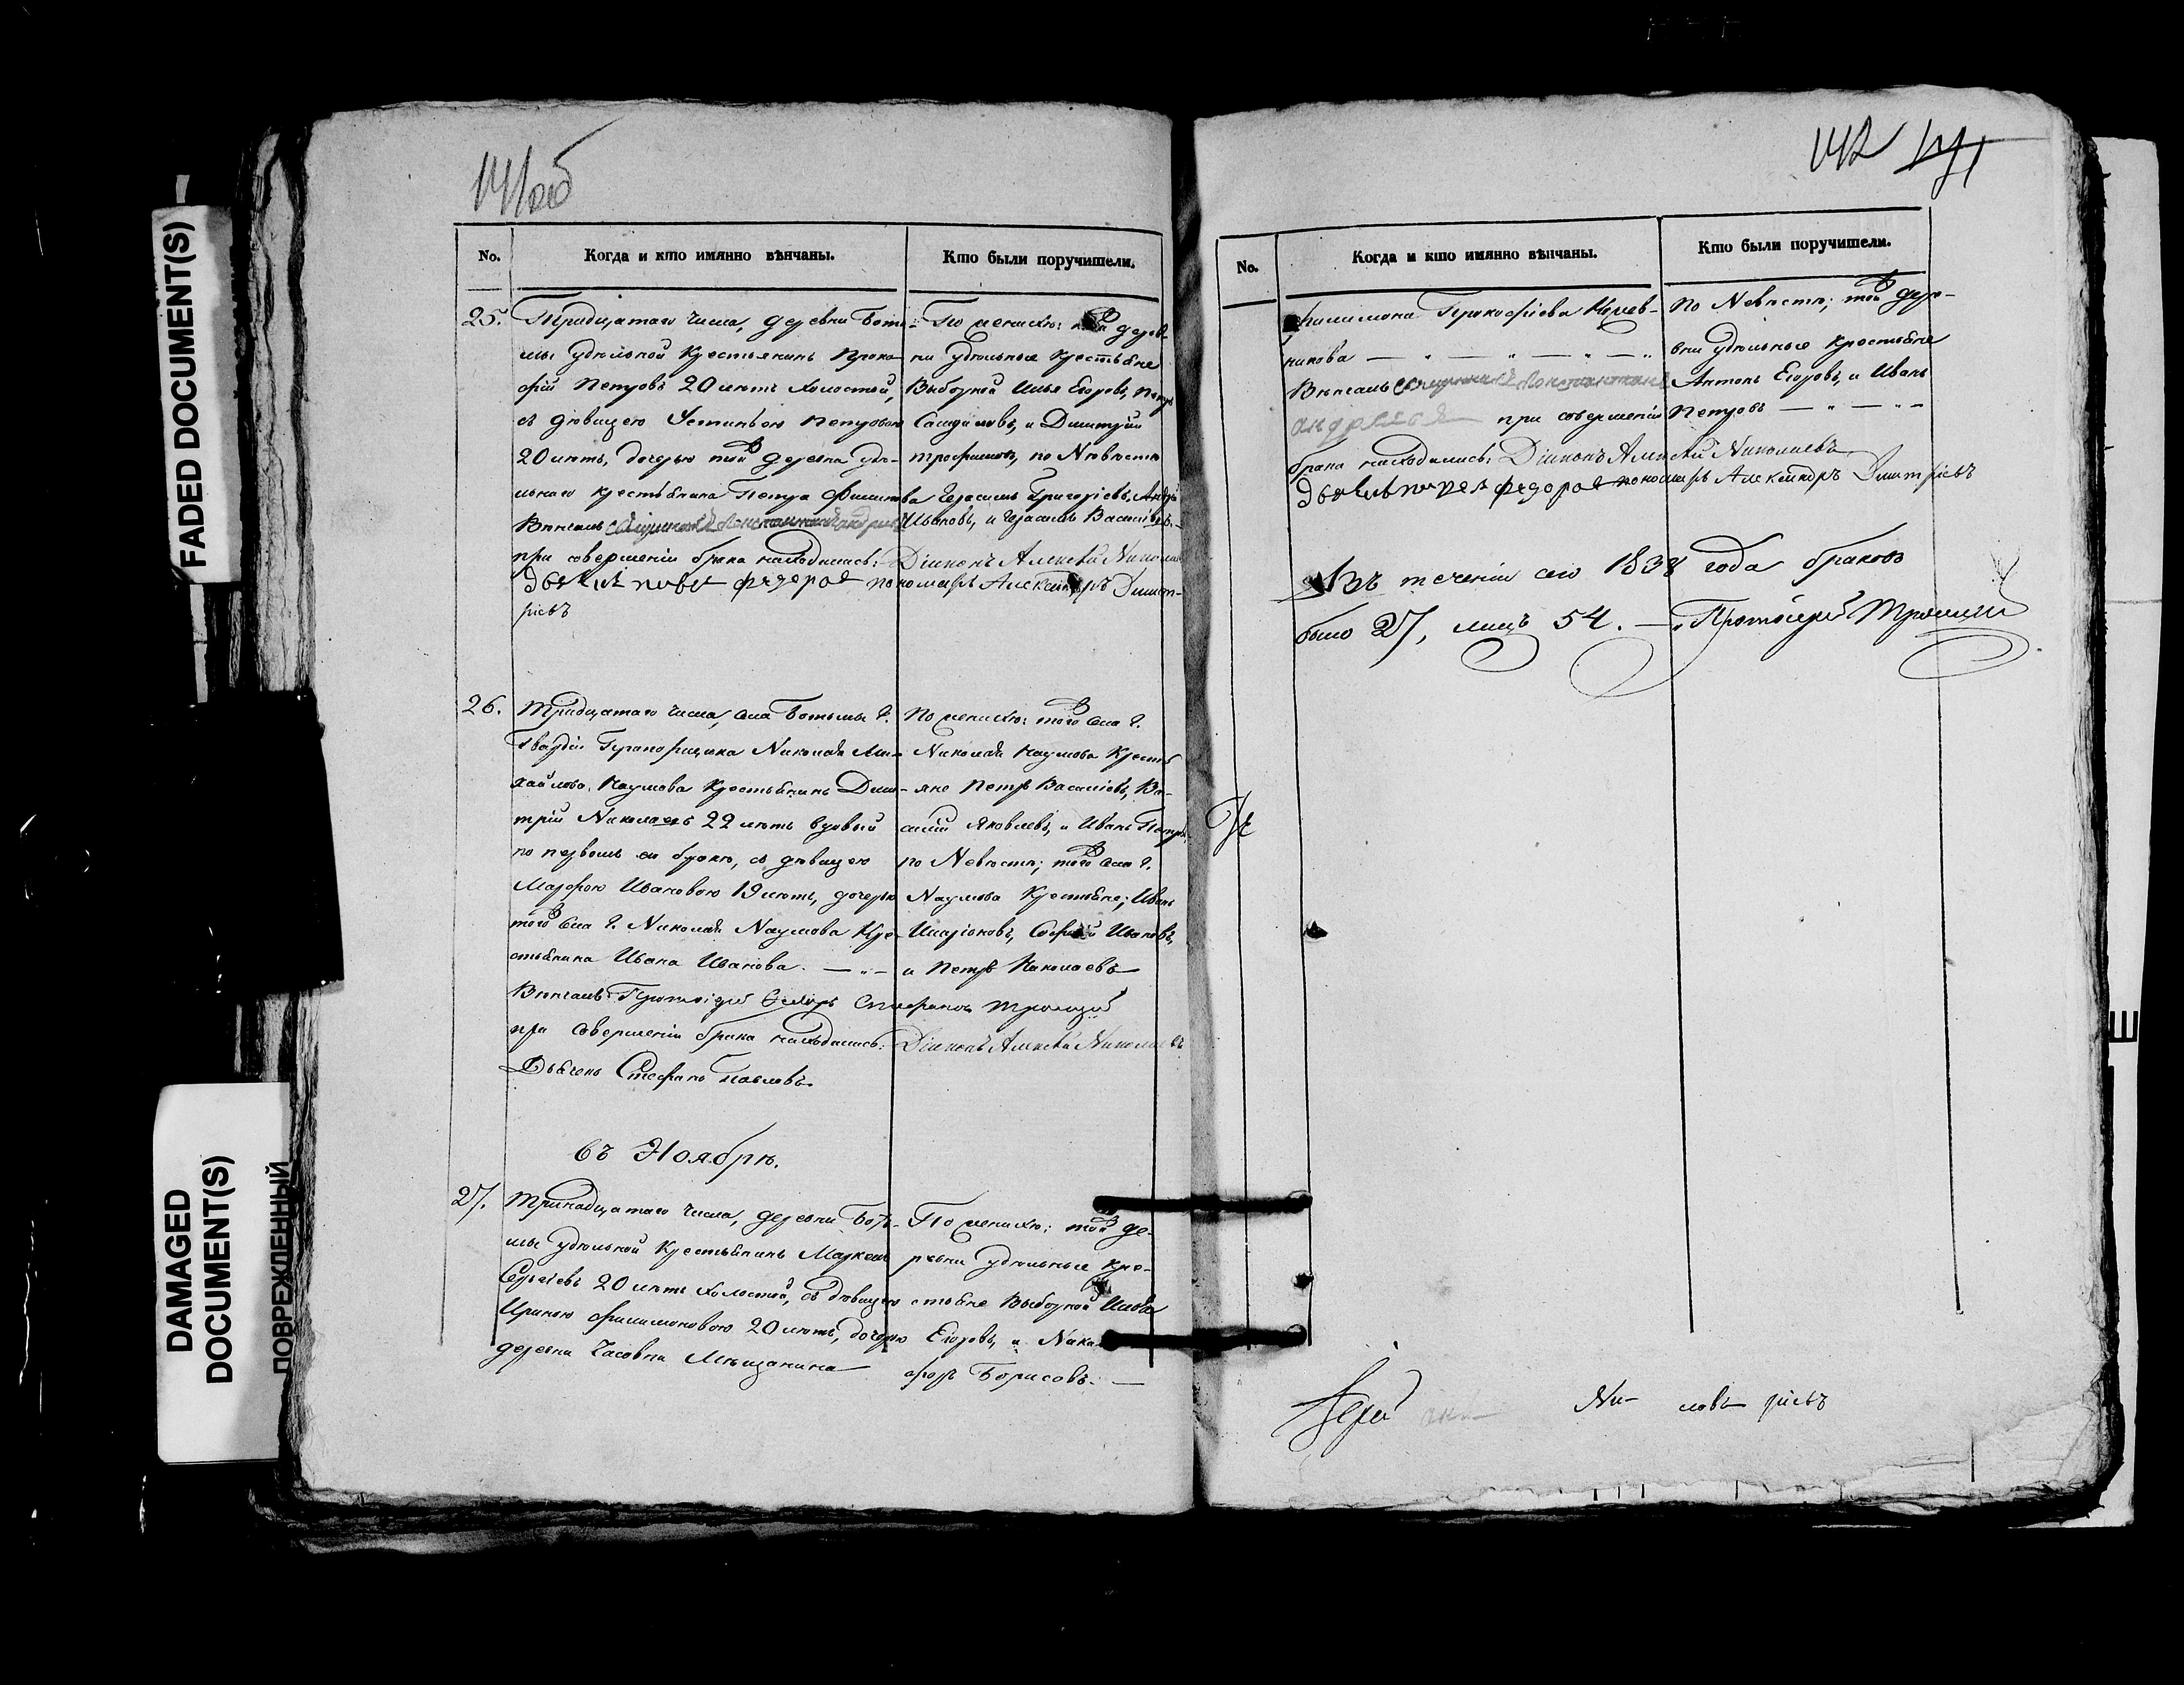 FADED DOCUMENT(S)
DAMAGED
DOCUMENT(S)
ПОВРЕЖДЕННЫЙ
141об
No.
Когда и кто имянно вѣнчаны.
Кто были поручители.
25. Тридцатаго числа, деревни Боть-
мы удѣльной Крестьянинъ Проко-
фій Петровъ 20 лѣтъ холостой,
съ дѣвицею Устиньею Петровою
20 лѣтъ, дочерью той деревни удѣ-
льнаго крестьянина Петра Филипова
Вѣнчалъ Священникъ Константинъ Андреевъ
при совершеніи брака находились: Діаконъ Алексѣй Николаевъ
дьячекъ федоровъ пономарь Александръ Димит-
ріевъ
По женихѣ: той дерев-
ни удѣльные крестьяне
Выборной Илья Егоровъ, Петръ
и Димитрій
Трофимовъ, по Невѣстѣ
Герасимъ Григорьевъ, Андрей
Ивановъ, и Герасимъ Васильевъ.
26. Тридцатаго числа, села Ботьмы г.
Гвардіи Прапорщика Николая Ми-
хайлова Наумова Крестьянинъ Дими-
трій Николаевъ 22 лѣтъ вдовый
по первомъ его бракѣ, съ дѣвицею
Марфою Ивановою 19 лѣтъ, дочерью
того села г. Николая Наумова Кре-
стьянина Ивана Иванова.
Вѣнчалъ: Протоіерей Стефановъ Троицкій
при совершеніи брака находились: Діаконъ Алексѣй Николаевъ
Дьячекъ Стефанъ Павловъ.
По женихѣ: того села г.
Николая Наумова Кресть
яне Петръ Васильевъ, Ва-
силій Яковлевъ, и Иванъ Петровъ
по Невѣстѣ; того села г.
Наумова Крестьяне; Иванъ
Иларіоновъ, Ивановъ,
и Петръ Николаевъ
въ Ноябрѣ.
27. Тринадцатаго числа, деревни Боть-
мы удѣльной Крестьянинъ Маркелъ
Сергѣевъ 20 лѣтъ холостой, съ дѣвицею
Ириною Филимоновою 20 лѣтъ, дочерью
деревни Часовни Мѣщанина
По женихѣ: той де-
ревни удѣльные кре-
стьяне Выборной Илья
Егоровъ, и Ника-
форъ Борисовъ.
142 141
No.
Когда и кто имянно вѣнчаны.
Кто были поручители.
Филимона Прокофіева
никова
Вѣнчалъ Священникъ Константинъ
андреевъ при совершеніи
брака находились: Діаконъ Алексѣй Николаевъ
федоровъ пономарь Александръ Димитріевъ
По Невѣстѣ; той дере-
вни удѣльные крестьяне
Антонъ Егоровъ, и Иванъ
Петровъ
Въ теченіи сего 1838 года браковъ
было 27, лицъ 54. Протоіерей Троицкій
Іерей Ни- ловъ ріевъ